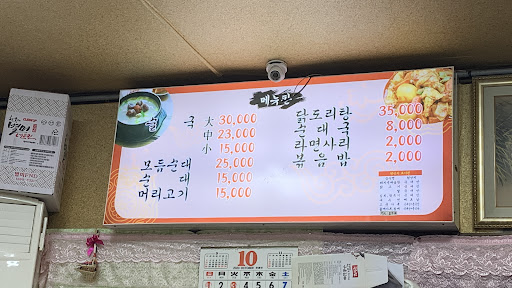 메뉴판
술국 大 30,000
中 23,000
小 15,000
모듬순대 25,000
순대 15,000
머리고기 15,000
닭도리탕 35,000
순대국 8,000
라면사리 2,000
볶음밥 2,000
10
日 月 火 水 木 金 土
1 2 3 4 5 6 7